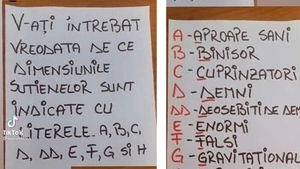 V-AȚI ÎNTREBAT
VREODATĂ DE CE
DIMENSIUNILE
SUTIENELOR SUNT
INDICATE CU
LITERELE. A, B, C,
D, DD, E, F, G ȘI H
TikTok
A - APROAPE SANI
B - BINISOR
C - CUPRINZATORI
D - DEMNI
DD - DEOSEBITI DE DEM
E - ENORMI
F - FALSI
G - GRAVITATIONAL